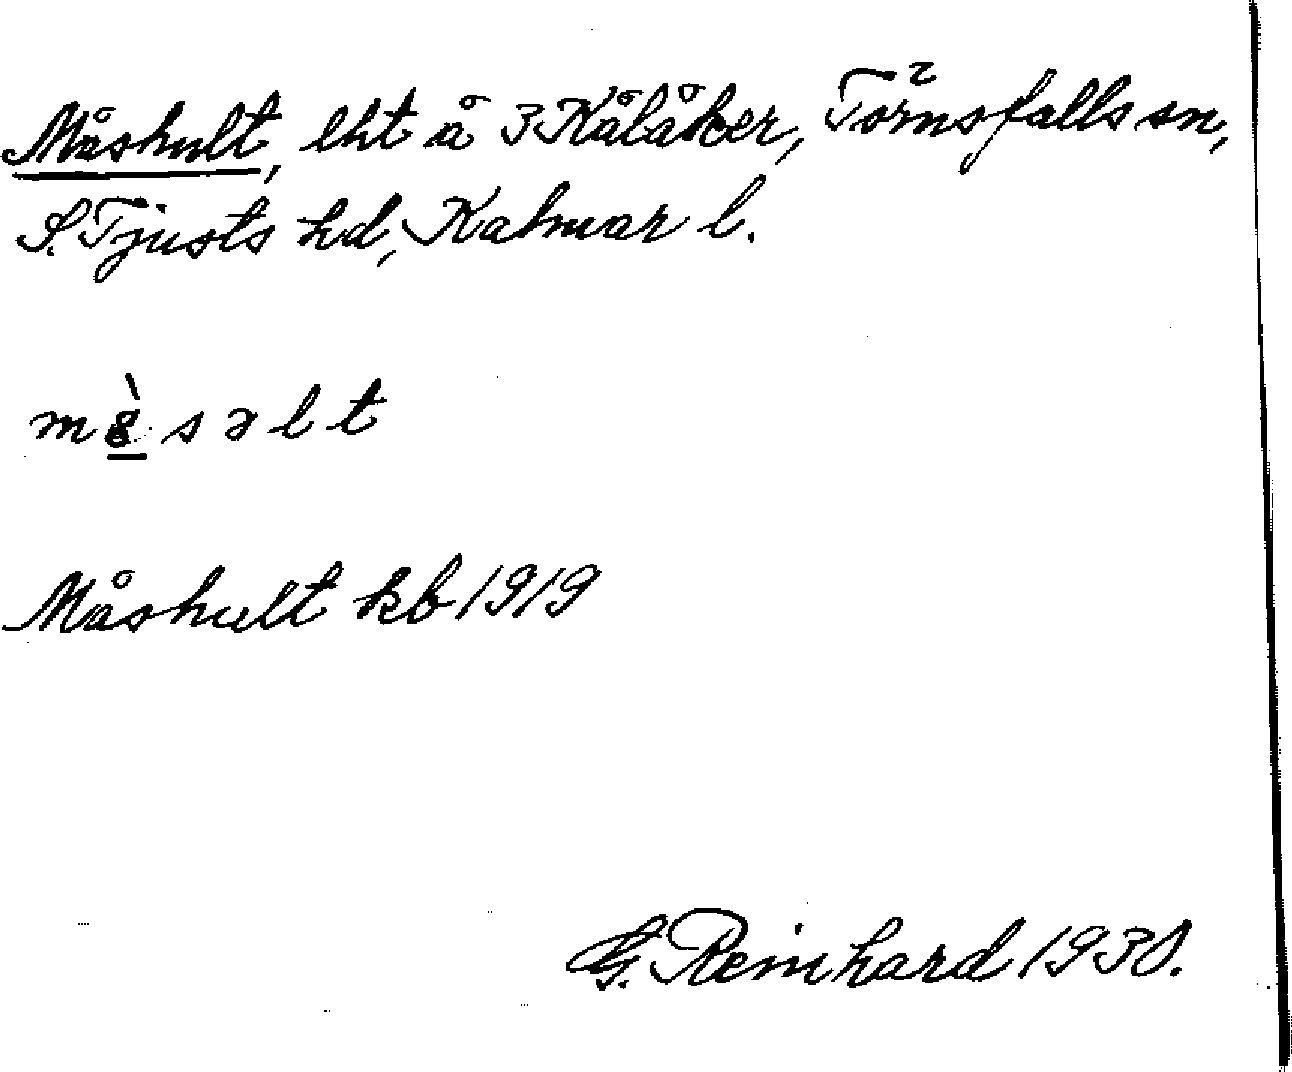 Måshult, lht å 3 Kålåker, Törnsfalls sn,
S. Tjusts hd, Kalmar l.
m s ə l t
Måshult kb 1919
G. Reinhard 1930.